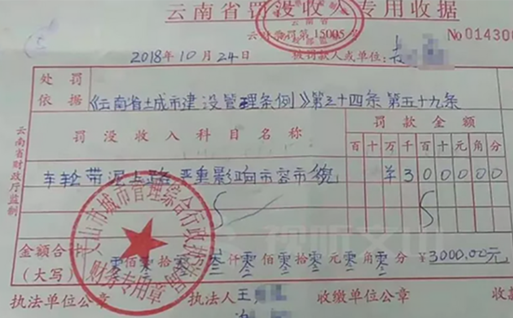 云南省罚没收入专用收据
云南省
云 罚第15005号
№014300
2018年10月24日
被罚款人或单位：长
处罚依据
《云南省城市建设管理条例》第三十四条 第五十九条
罚没收入科目名称
罚款金额
百十万千百十元角分
车轮带泥上路 严重影响市容市貌
¥300000
金额合计（大写）
零佰零拾零万叁仟零佰零拾零元零角零分 ¥3000.00元
文山市城市管理综合行政执法局
财务专用章
执法单位公章
执法人：王
收缴单位公章
云南省财政厅监制